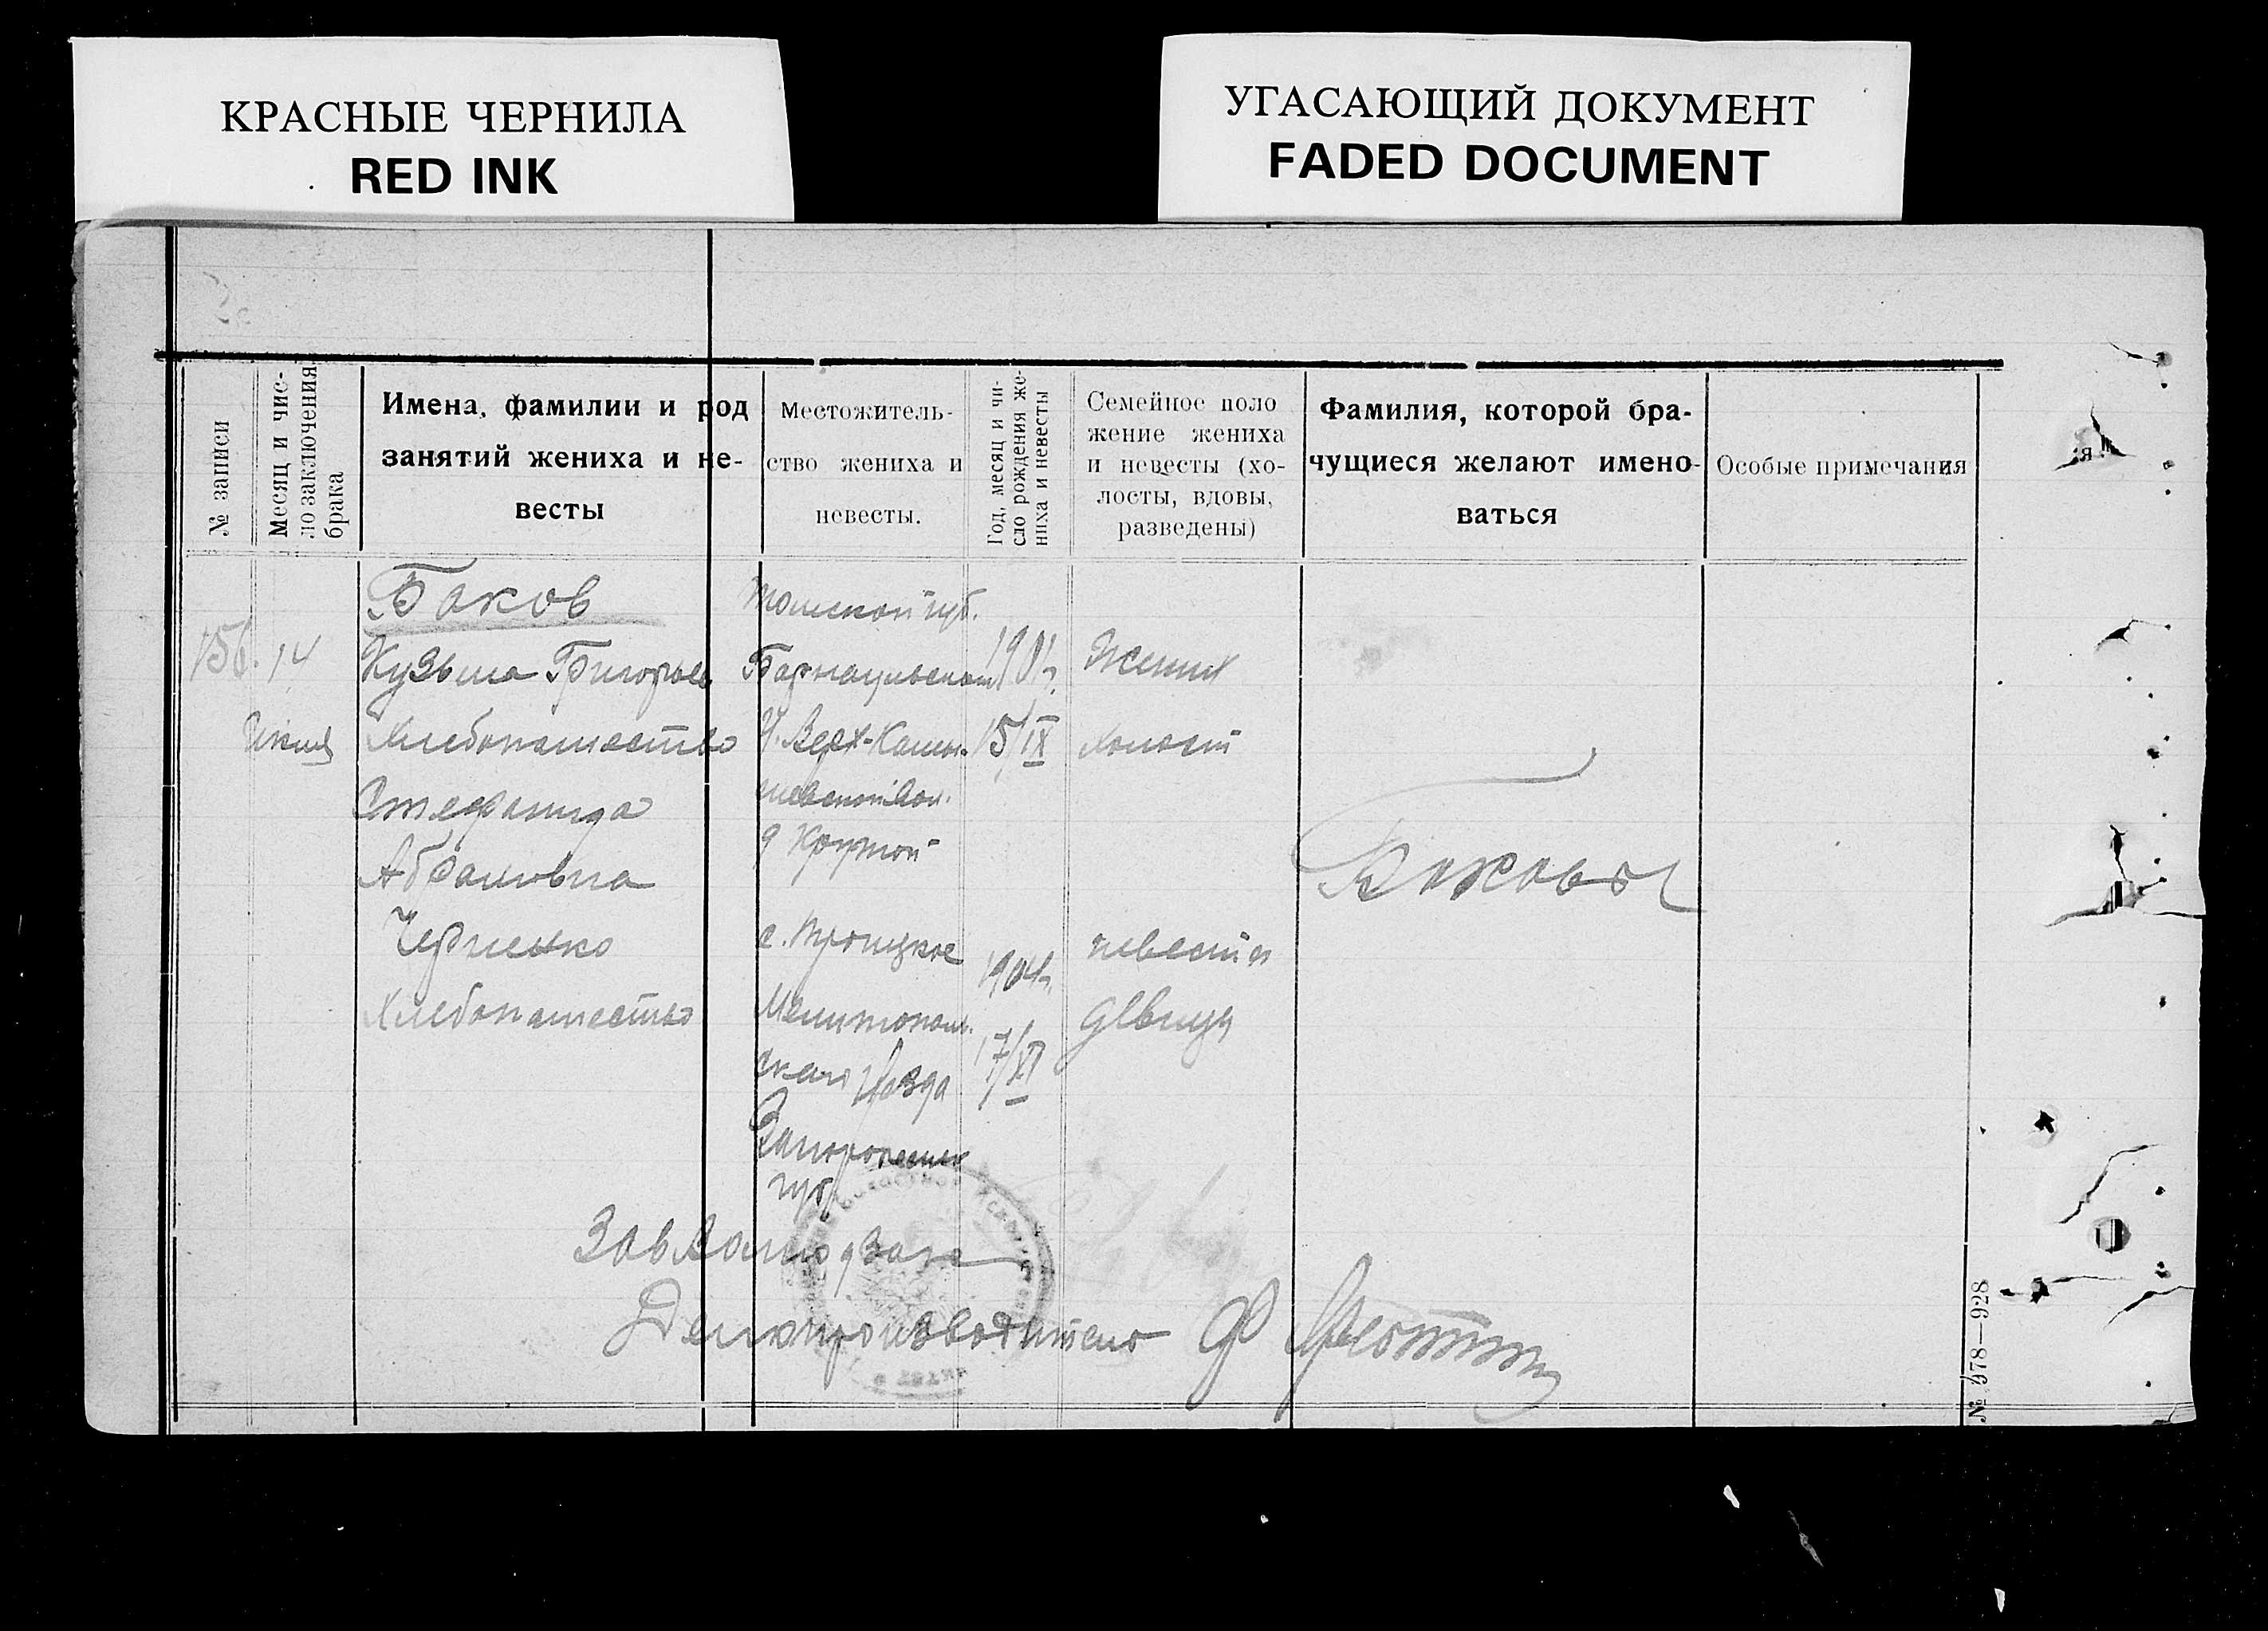 КРАСНЫЕ ЧЕРНИЛА
RED INK
УГАСАЮЩИЙ ДОКУМЕНТ
FADED DOCUMENT
№ записи
Месяц и чис-
ло заключения
брака
Имена, фамилии и род
занятий жениха и не-
весты
Местожитель-
ство жениха и
невесты.
Год, месяц и чи-
сло рождения же-
ниха и невесты
Семейное поло
жение жениха
и невесты (хо-
лосты, вдовы,
разведены)
Фамилия, которой бра-
чущиеся желают имено-
ваться
Особые примечания
156.
14
Июня
Баков
Кузьма Григорьев
Хлебопашество
Стефанида
Абрамовна
Черненко
Хлебопашество
Томской губ.
Барнаульском
У. Верх-
вол.
д Крутой
с. Троицкое
Мелитополь.
ского уезда
Запорожск
губ
1901г.
15/IX
1904г.
17/XI
Жених
холост
невеста
девица
Баковы
Зав
Делопроизводитель Ф
№ 978—928